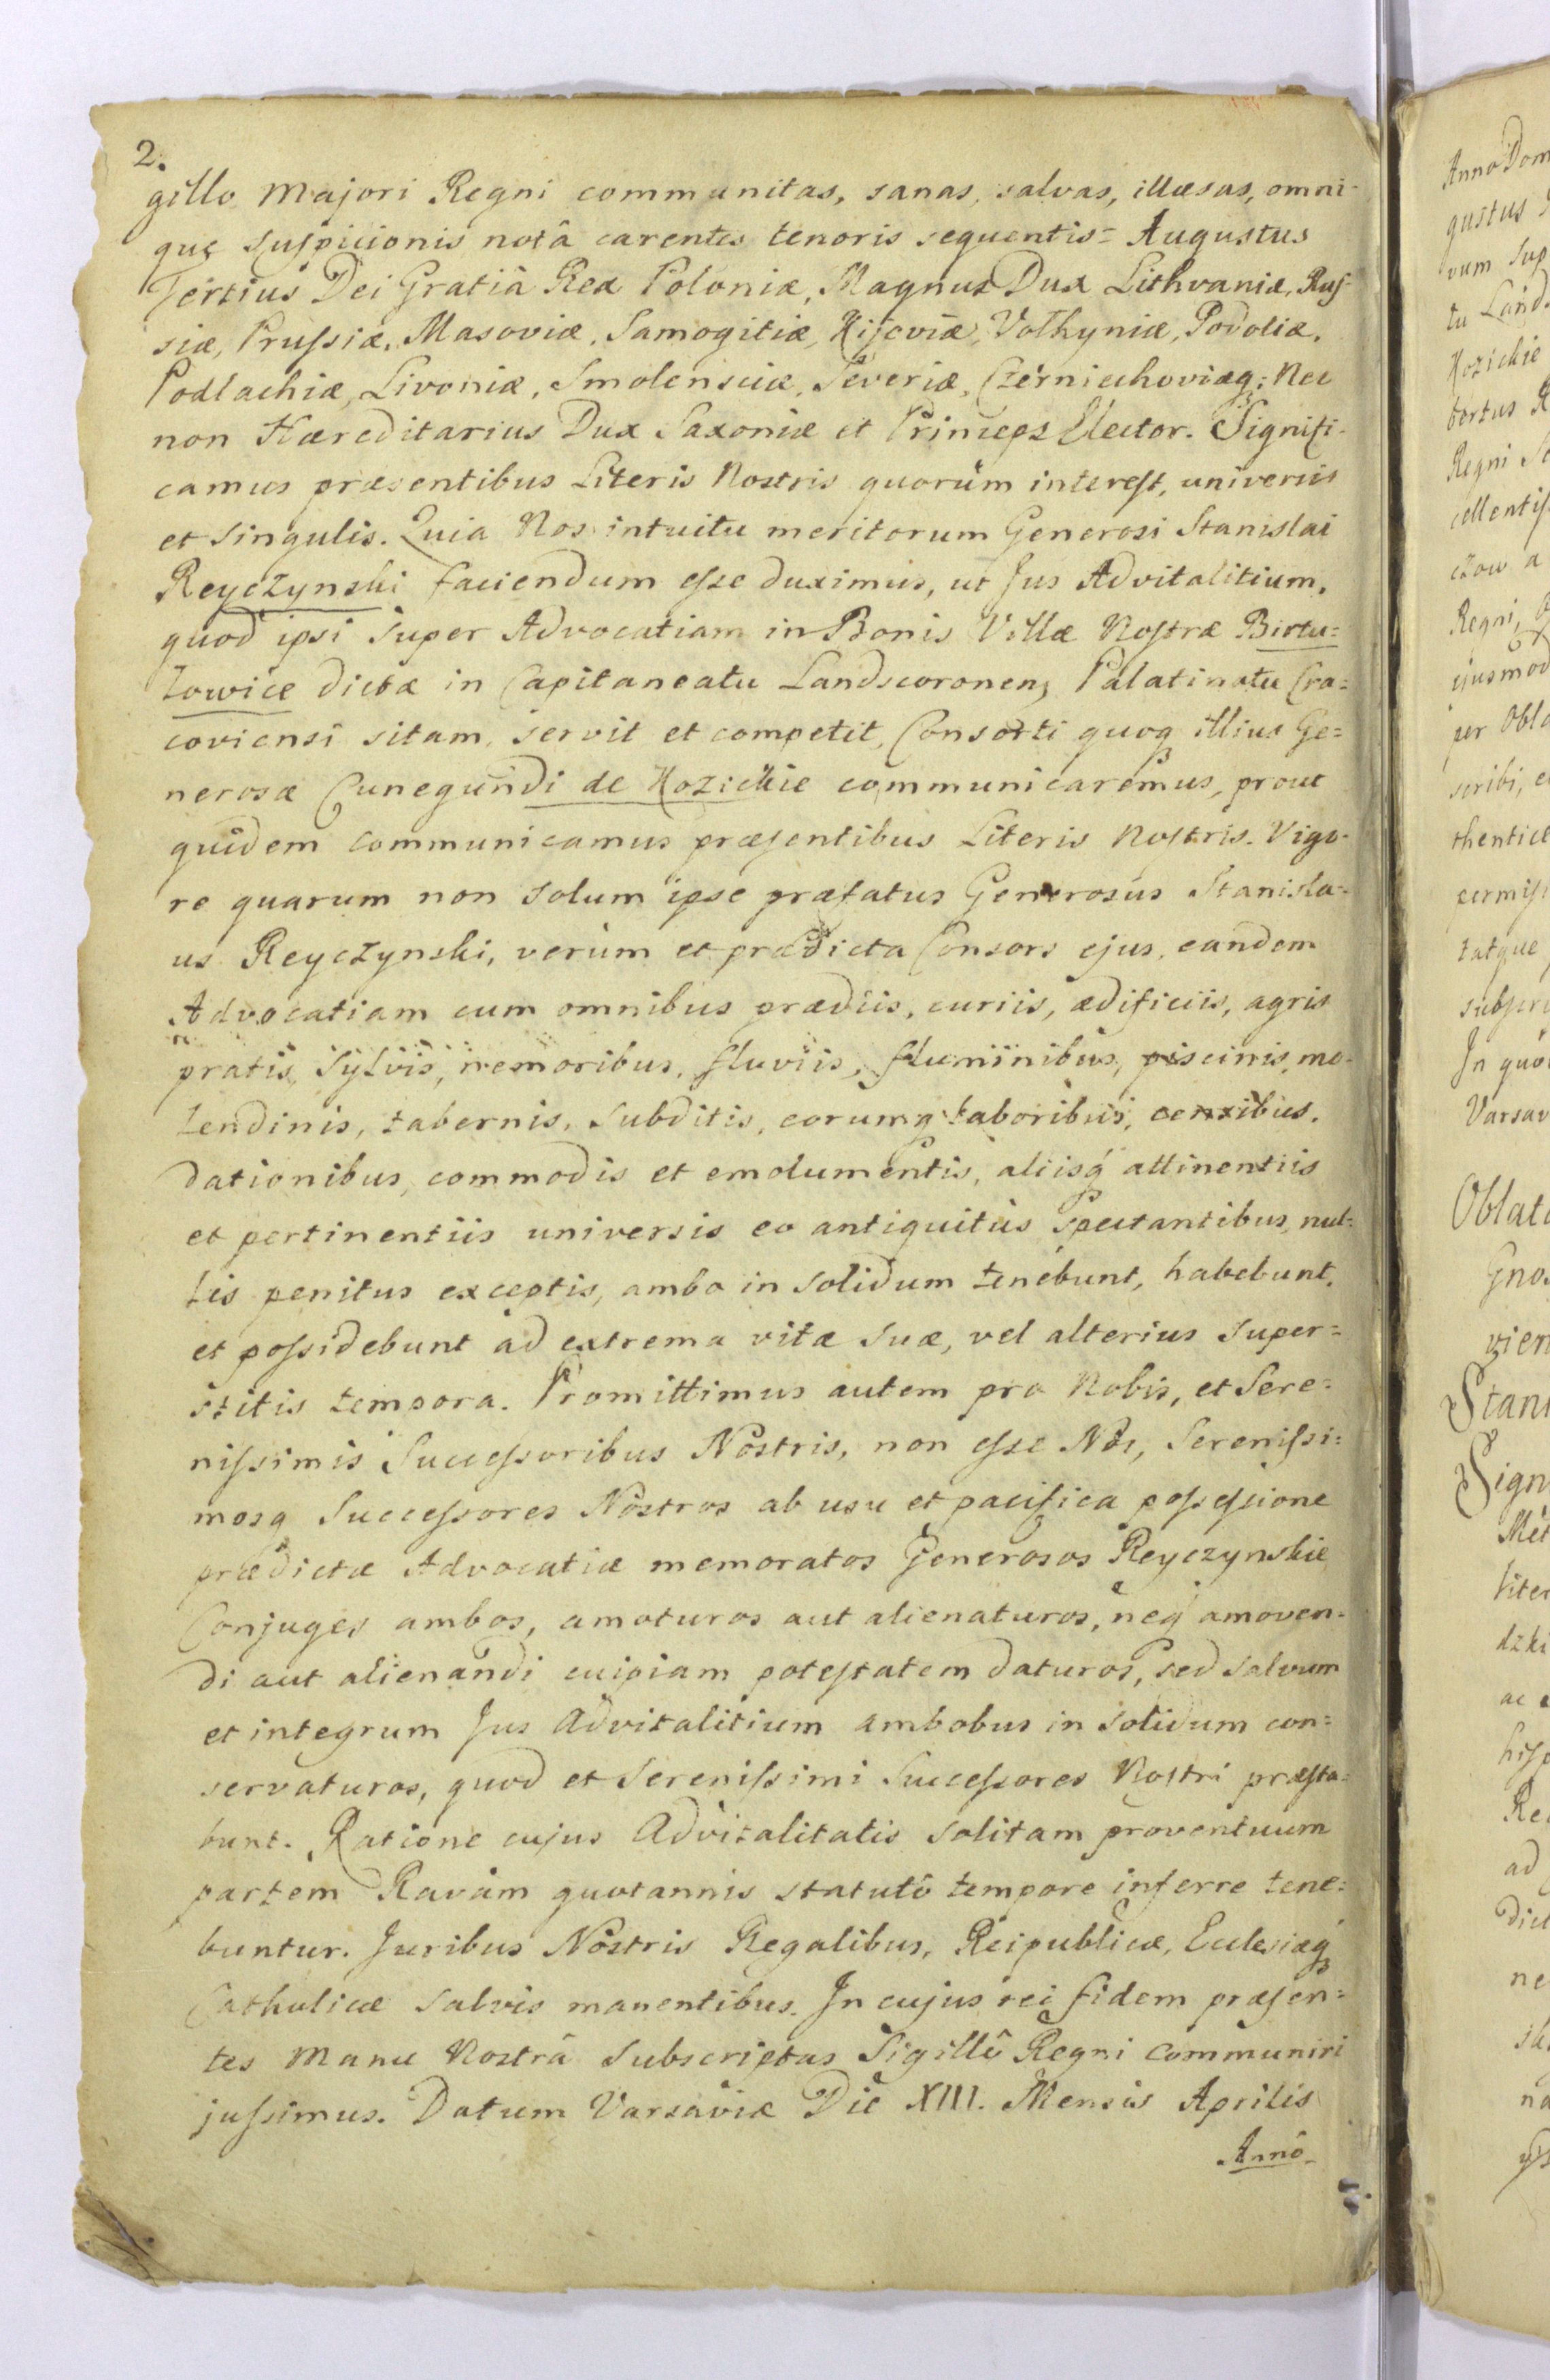 2.
gillo Majori Regni communitas, sanas, salvas, illæsas, omni-
que suspicionis notâ carentes tenoris sequentis= Augustus
Tertius Dei Gratiâ Rex Poloniæ, Magnus Dux Lithvaniæ, Rus-
siæ, Prussiæ, Masoviæ, Samogitiæ, Kijoviæ, Volhyniæ, Podoliæ,
Podlachiæ, Livoniæ, Smolensciæ, Severiæ, Czerniechoviæq; Nec
non Hæreditarius Dux Saxoniæ et Princeps Elector. Signifi-
camus præsentibus Literis Nostris quorum interest, universis
et singulis. Quia Nos intuitu meritorum Generosi Stanislai
Reyczynski faciendum esse duximus, ut Jus Advitalitium,
quod ipsi super Advocatiam in Bonis Villæ Nostræ Birtu=
ltowice dictæ in Capitaneatu Landscoronen, Palatinatu Cra=
coviensi sitam, servit et competit, Consorti quoq illius Ge=
nerosæ Cunegundi de Kozickie communicaremus, prout
quidem communicamus præsentibus Literis Nostris. Vigo-
re quarum non solum ipse præfatus Generosus Stanisla=
us Reyczynski, verùm et prædicta Consors ejus, eandem
Advocatiam cum omnibus prædiis, curiis, ædificiis, agris
pratis, sylvis, nemoribus, fluviis, fluminibus, piscinis, mo-
lendinis, tabernis, subditis, eorumq laboribus, censibus,
dationibus, commodis et emolumentis, aliisq́ attinentiis
et pertinentiis universis eo antiquitùs spectantibus, nul=
lis penitus exceptis, ambo in solidum tenebunt, habebunt,
et possidebunt ad extrema vitæ suæ, vel alterius super=
stitis tempora. Promittimus autem pro Nobis, et Sere=
nissimis Successoribus Nostris, non esse Nos, Serenissi=
mosq Successores Nostros ab usu et pacifica possessione
prædictæ Advocatiæ memoratos Generosos Reyczynskie
Conjuges ambos, amoturos aut alienaturos, neq́ amoven=
di aut alienandi cuipiam potestatem daturos, sed salvum
et integrum Jus Advitalitium ambobus in solidum con=
servaturos, quod et Serenissimi Successores Nostri præsta=
bunt. Ratione cujus Advitalitatis solitam proventuum
partem Ravam quotannis statutô tempore inferre tene=
buntur. Juribus Nostris Regalibus, Reipublicæ, Ecclesiæq
Catholicæ salvis manentibus. In cujus rei fidem præsen=
tes Manu Nostrâ subscriptas Sigillô Regni communiri
jussimus. Datum Varsaviæ Die XIII. Mensis Aprilis
Annô
Anno Dom
gustus
vum Sup
tu Land
Kozickie
bertus R
Regni Se
cellentis
czow a
Regni,
ejusmod
per Obla
scribi, e
thentice
permis
tatque
subscri
In quor
Varsav
Oblata
Gnos
vien
Stani
Sign
Met
liter
dzki
ac
hisp
Re
ad
dict
ne
sk
na